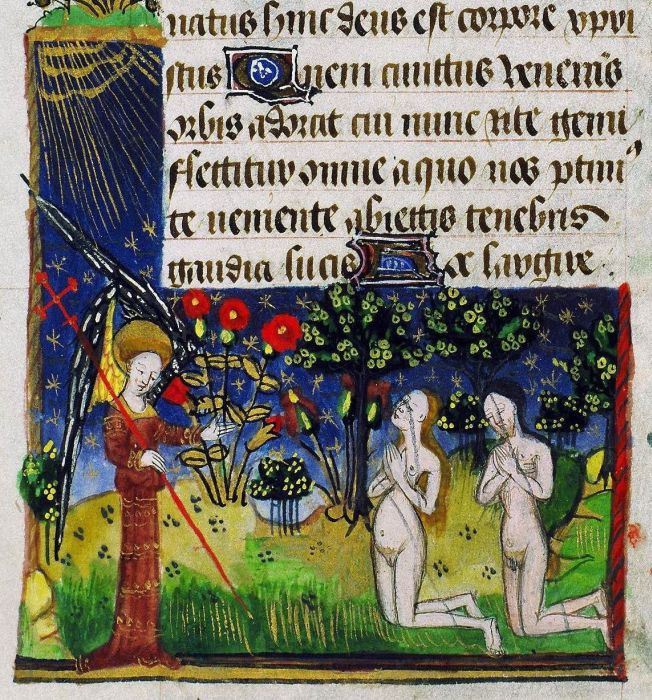 natus hinc deus est corpore xpri
stus Quem cunctus venerans
orbis adorat cui nunc rite genu
flectitur omne a quo nos ptim9
te veniente abiectis tenebris
gaudia lucis Hoc largire